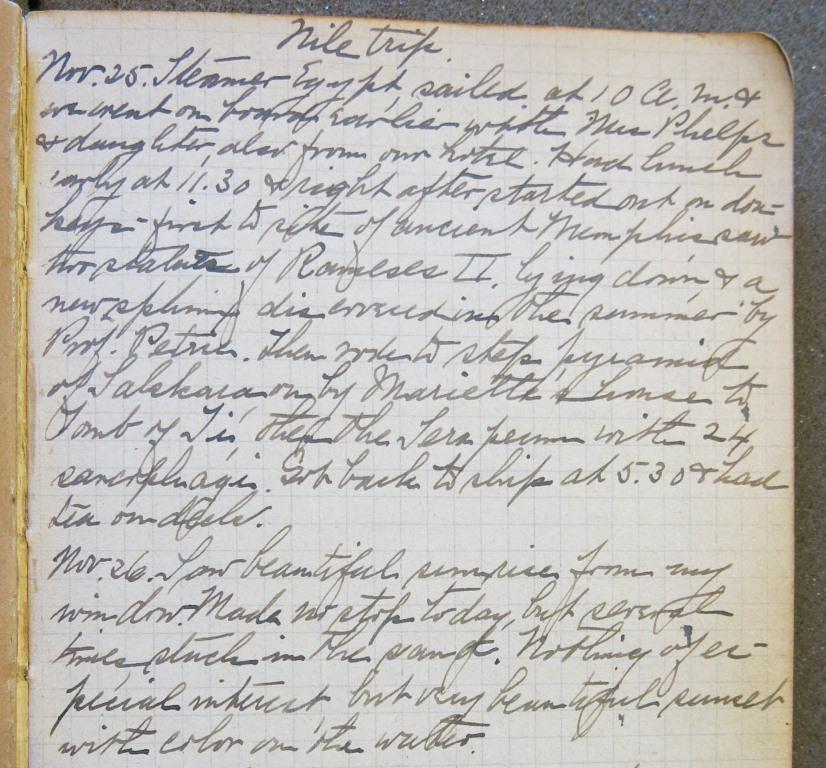 Nile trip.
Nov. 25. Steamer Egypt, sailed at 10 A. M. &
we went on board earlier with Mrs Phelps
& daughter, also from our hotel. Had lunch
early at 11.30 & right after started out on don-
keys - first to site of ancient Memphis, saw
two statues of Rameses II, lying down & a
new sphinx discovered in the summer by
Prof. Petrie. Then rode to step pyramid
of Sakkara, on by Mariette's house to
Tomb of Ti, then the Serapeum with 24
sarcophagi. Got back to ship at 5.30 & had
tea on deck.
Nov. 26. Saw beautiful sunrise from my
window. Made no stop today, but several
times stuck in the sand. Nothing of es-
pecial interest but very beautiful sunset
with color on the water.